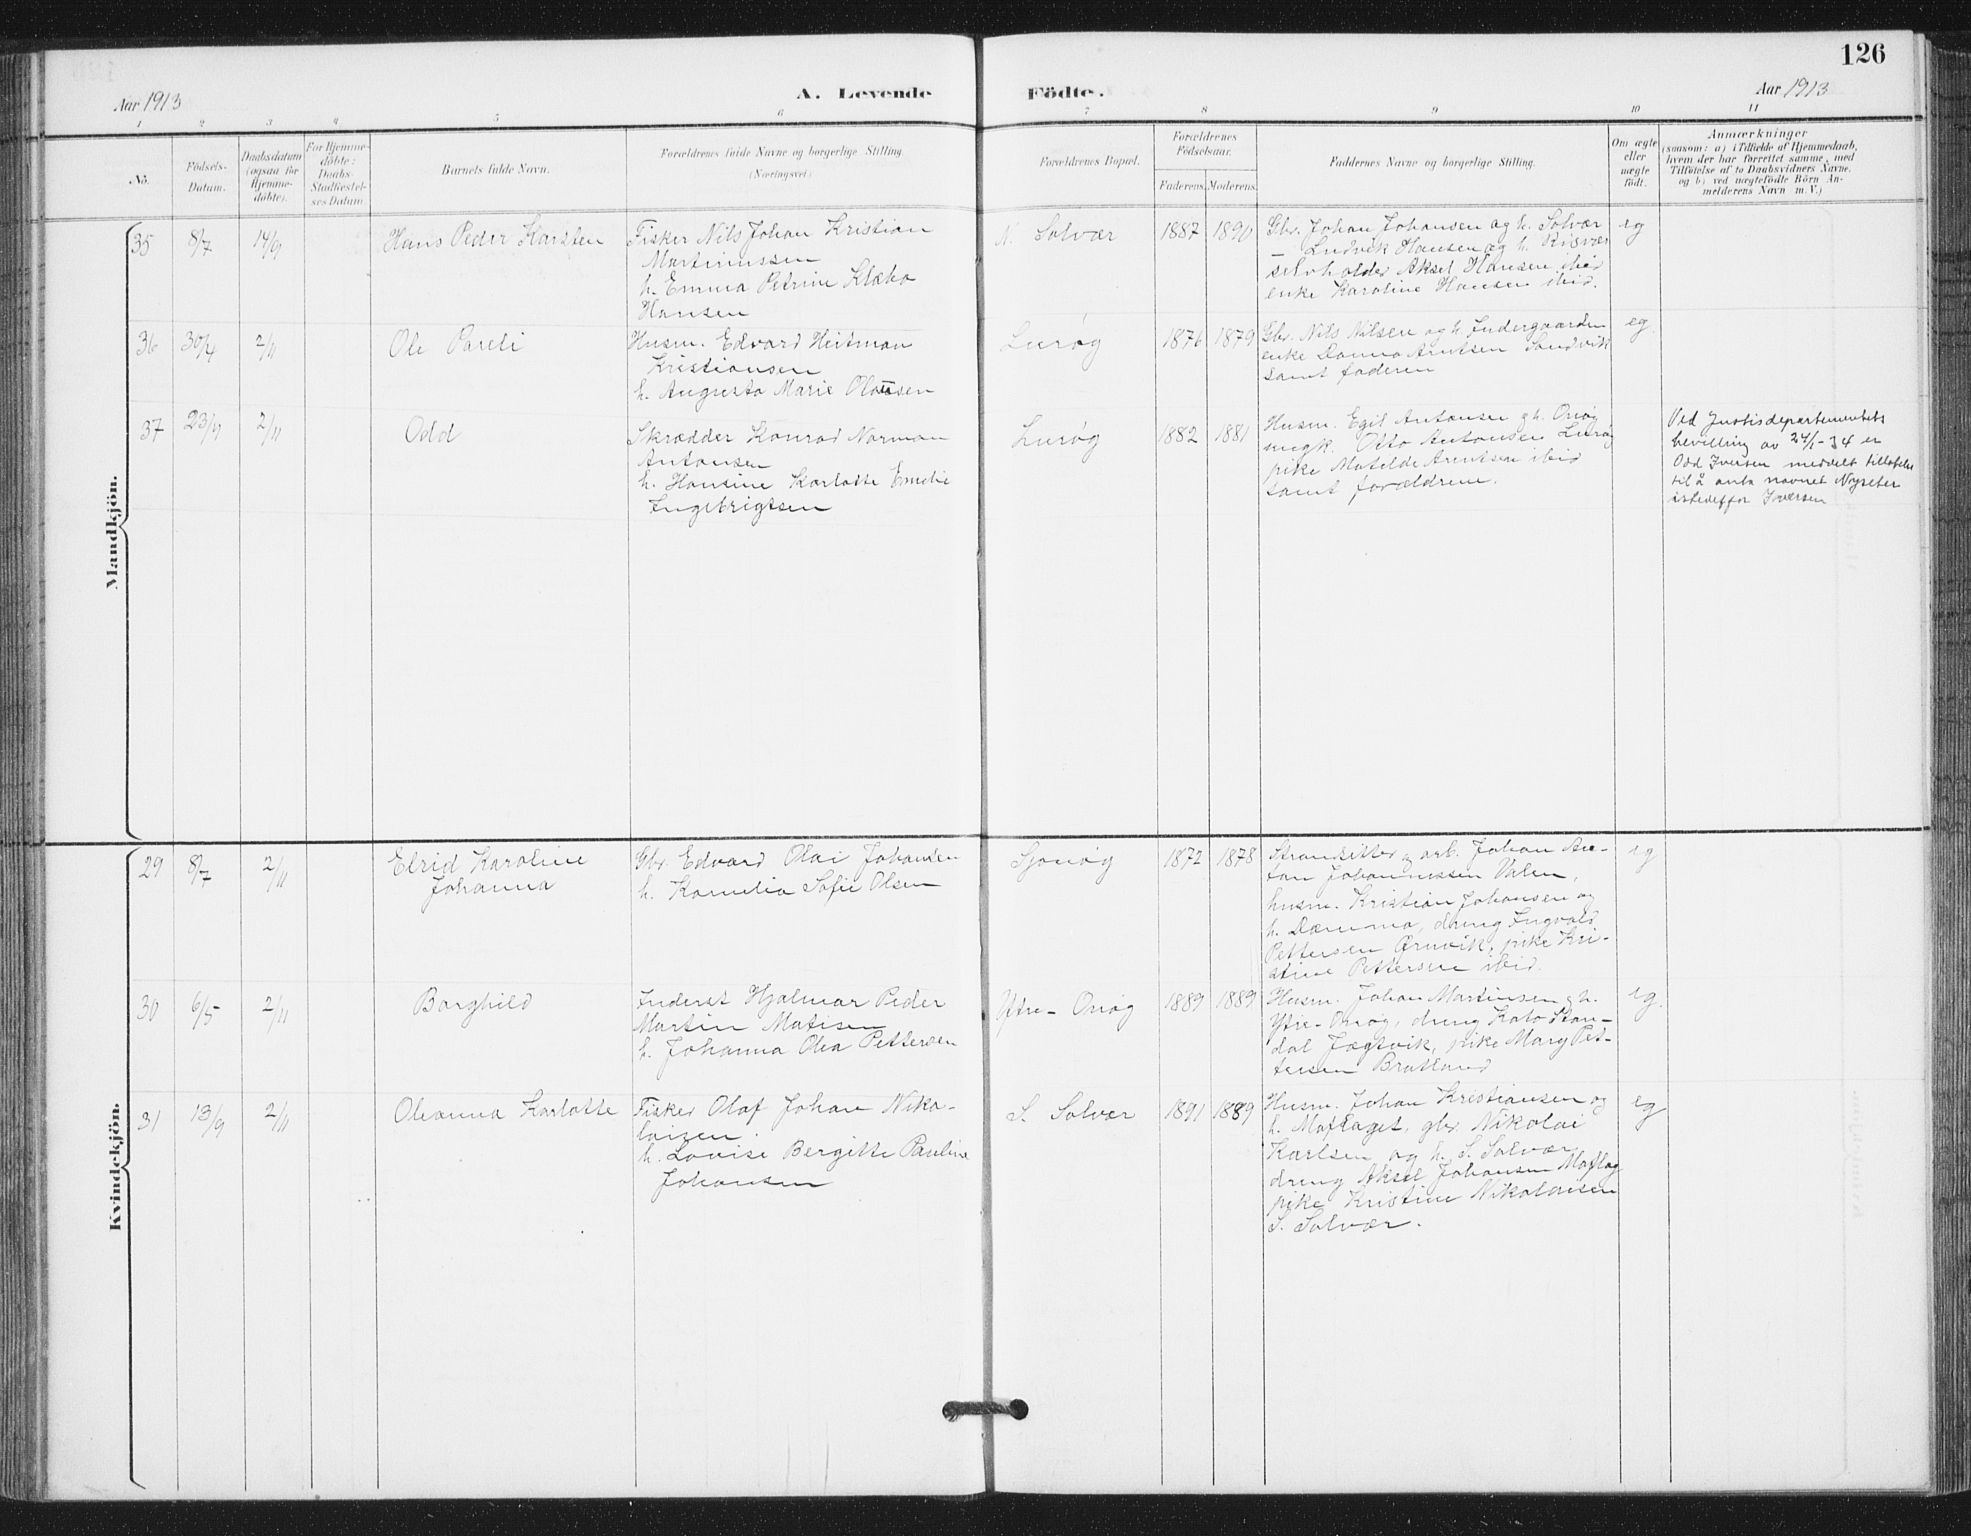 126
Aar 1913
A. Levende
Födte.
Aar 1913
1 2 3 4 5 6 7 8 9 10 11
No.
Födsels-
Datum.
Daabsdatum
(ogsaa for
Hjemme-
döbte).
For Hjemme-
döbte:
Daabs-
Stadfæstel-
ses Datum
Barnets fulde Navn.
Forældrenes fulde Navne og borgerlige Stilling.
(Næringsvei)
Forældrenes Bopæl.
Forældrenes
Födselsaar.
Faderens. Moderens.
Faddernes Navne og borgerlige Stilling.
Om ægte
eller
uægte
födt.
Anmærkninger
(saasom: a) i Tilfælde af Hjemmedaab,
hvem der har forrettet samme, med
Tilföielse af to Daabsvidners Navne,
og b) ved uægtefödte Börn An-
melderens Navn m. V.)
Mandkjön.
35 8/7 14/9 Hans Peder Karsten
Fisker Nils Johan Kristian
Martinussen
h. Emma Petrine Klæbo
Hansen
N. Solvær 1887 1890
Gbr. Johan Johansen og h. Solvær
— Ludvik Hansen og h. Risvær
selvholder Aksel Hansen ibid
enke Karoline Hansen ibid.
eg
36 30/4 2/11 Ole Pareli
Husm. Edvard Heitman
Kristiansen
h. Augusta Marie Olaussen
Lurøy 1876 1879
Gbr. Nils Nilsen og h. Indergaarden
enke Danna Arntsen Sandvik
samt faderen
eg.
37 23/9 2/11 Odd
Skrædder Konrad Norman
Antonsen
h. Hansine Karlotte Emelie
Ingebrigtsen
Lurøy 1882 1881
Husm. Egil Antonsen og h. Onøy
ungk. Otto Antonsen Lurøy
pike Matilde Arentsen ibid
samt forældrene.
Ved Justisdepartementets
bevilling av 24/1-34 er
Odd Iversen meddelt tillatelse
til å anta navnet Nyseter
istedetfor Iversen
Kvindekjön.
29 8/7 2/11 Elrid Karoline
Johanna
Gbr. Edvard Olai Johansen
h. Kornelia Sofie Olsen
Sjonøy 1872 1878
Strandsitter og arb. Johan Are-
tan Johannessen Valen,
husm. Kristian Johansen og
h. Dænna, dreng Ingvald
Pettersen Ørnvik, pike Kri-
stine Pettersen ibid.
eg
30 6/5 2/11 Borghild
Inderst Hjalmar Peder
Martin Matisen
h. Johanna Olea Pettersen
Ytre- Onøy 1889 1889
Husm. Johan Martinsen og h.
Ytre- Onøy, dreng Kato Stan-
dal Jægtvik, pike Mary Pet-
tersen Bratland
eg.
31 13/9 2/11 Oleanna Karlotte
Fisker Olaf Johan Niko-
laisen.
h. Lovise Bergitte Pauline
Johansen
S. Solvær 1891 1889
Husm. Johan Kristiansen og
h. Moflaget, gbr. Nikolai
Karlsen og h. S. Solvær,
dreng Aksel Johansen Moflag
pike Kristine Nikolaisen
S. Solvær.
eg